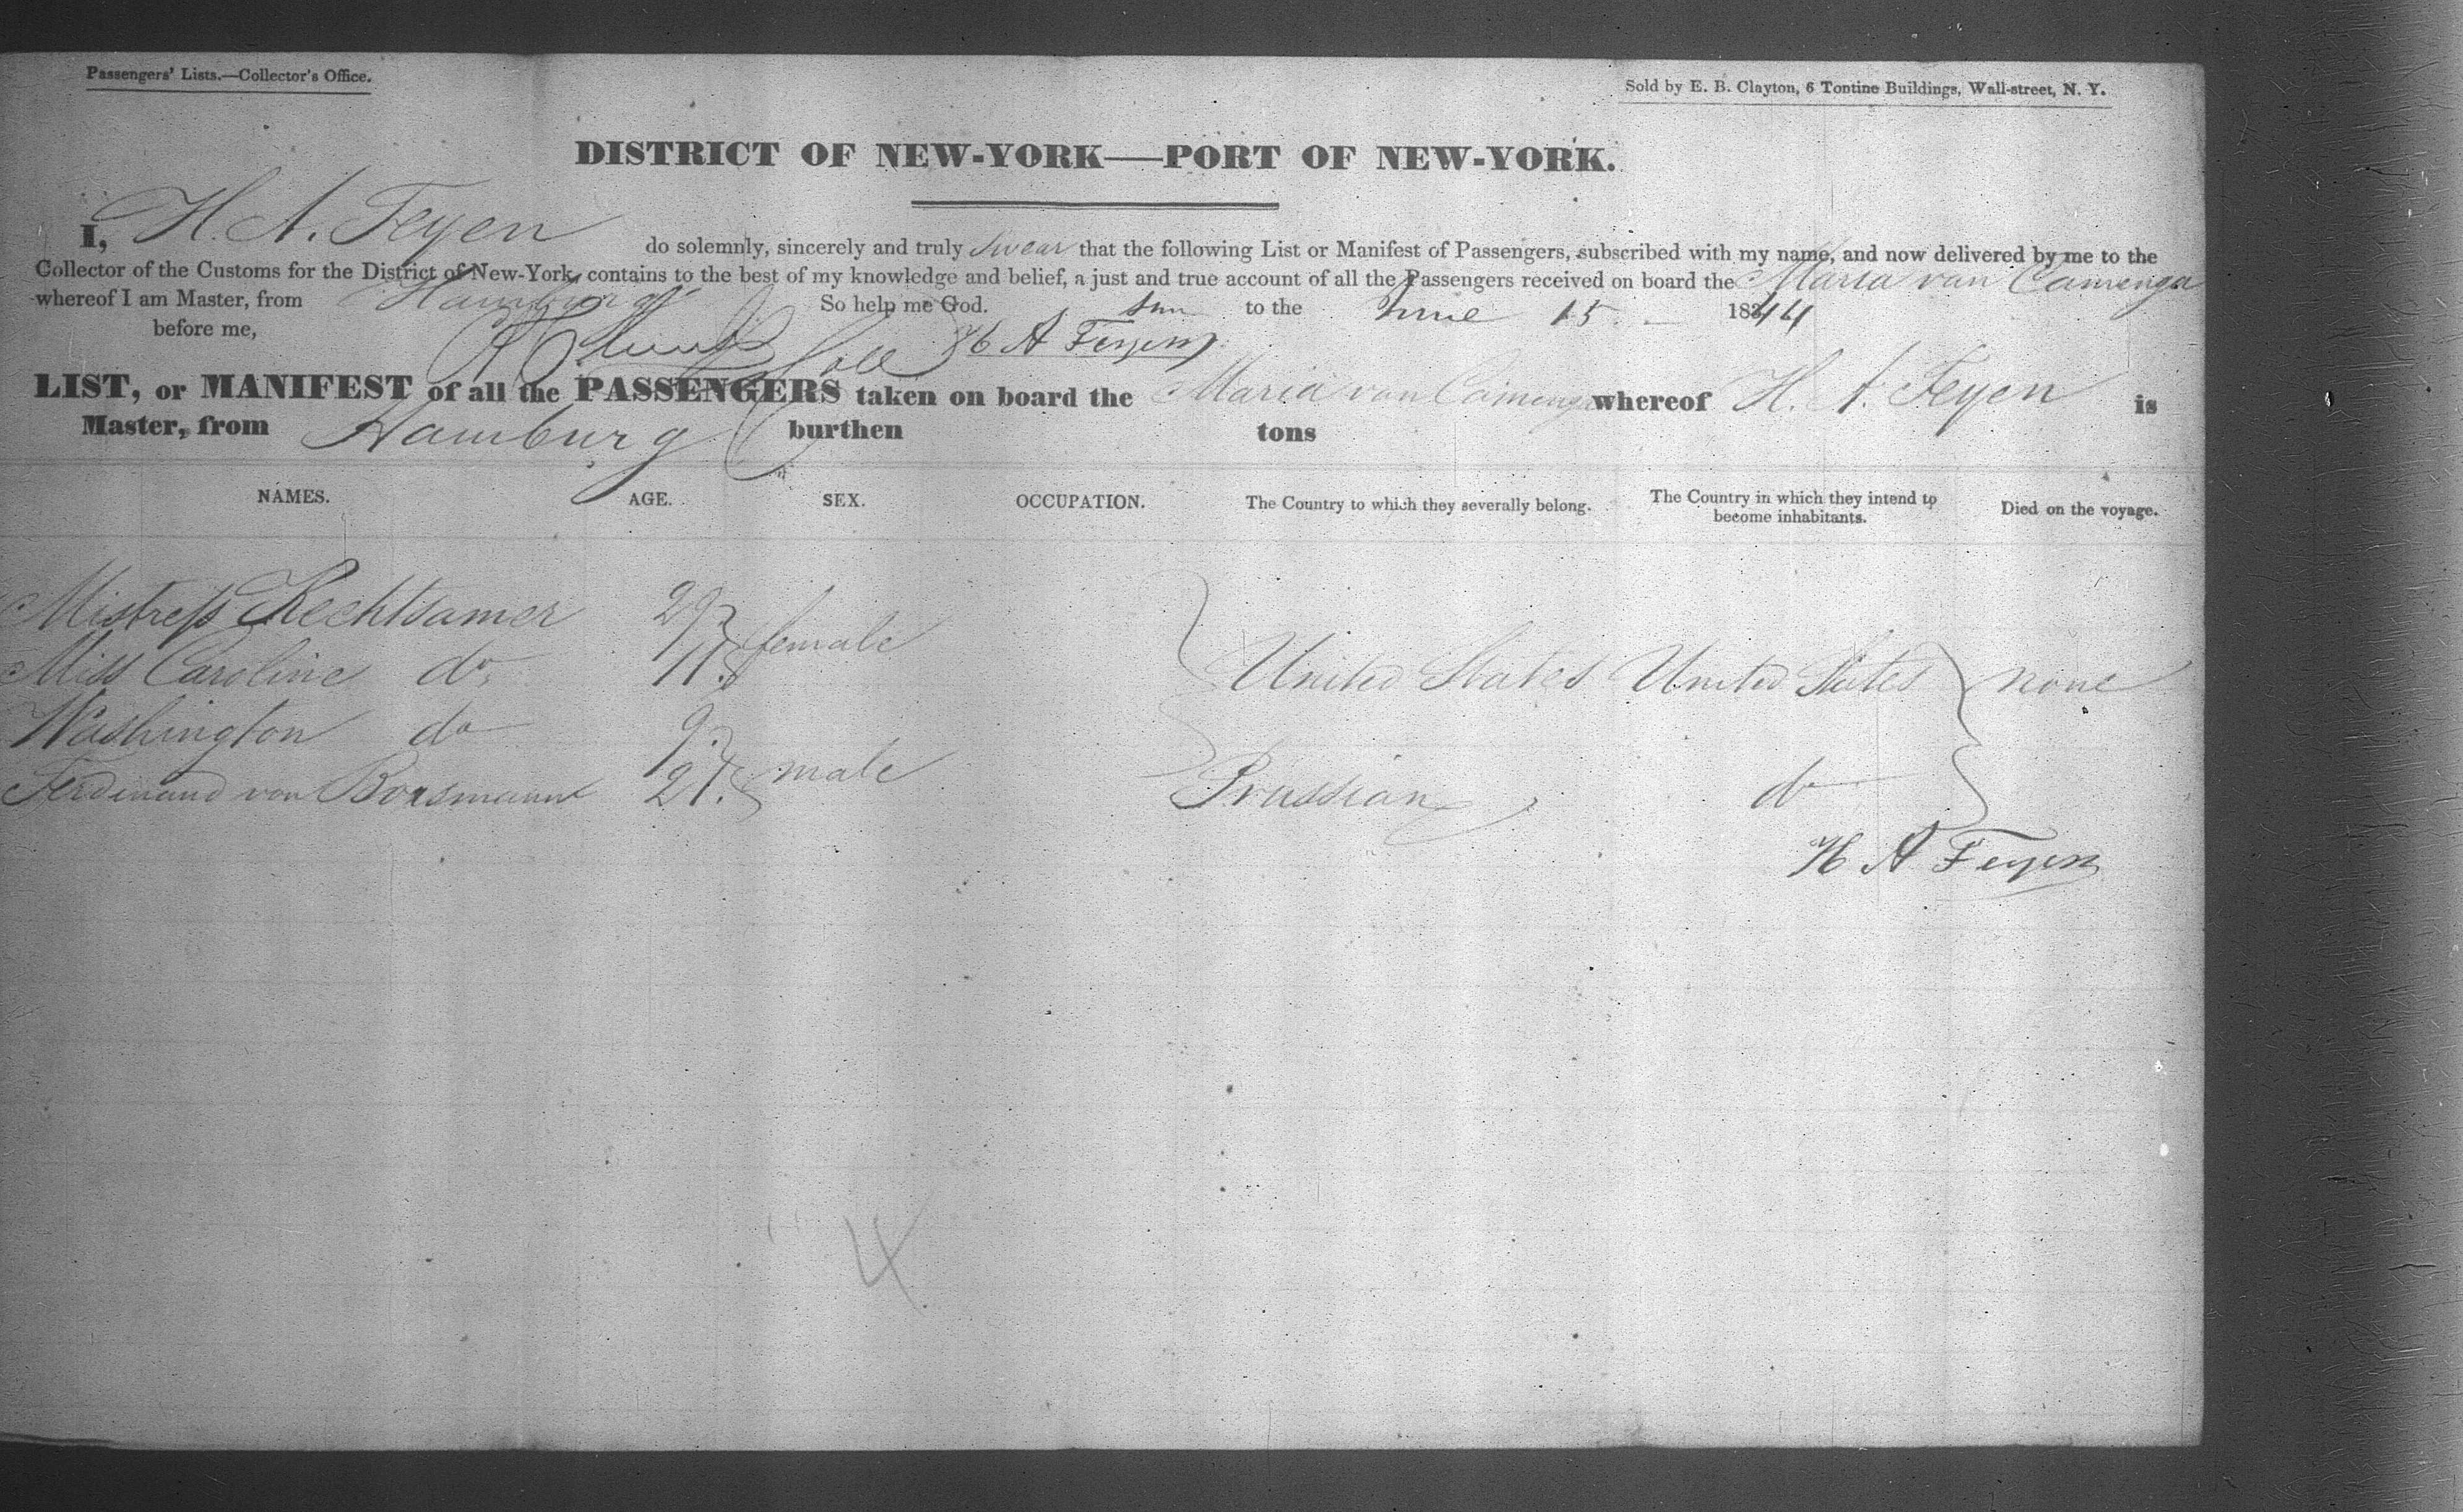 Passengers' Lists.—Collector's Office.
Sold by E. B. Clayton, 6 Tontine Buildings, Wall-street, N. Y.
DISTRICT OF NEW-YORK—PORT OF NEW-YORK.
I, H. A. Feyen do solemnly, sincerely and truly swear that the following List or Manifest of Passengers, subscribed with my name, and now delivered by me to the
Collector of the Customs for the District of New-York, contains to the best of my knowledge and belief, a just and true account of all the Passengers received on board the Maria van Camenga
whereof I am Master, from Hamburg So help me God. to the June 15 1844
before me, H A Feyen
LIST, or MANIFEST of all the PASSENGERS taken on board the Maria van Camenga whereof H. A. Feyen is
Master, from Hamburg burthen tons
NAMES. AGE. SEX. OCCUPATION. The Country to which they severally belong. The Country in which they intend to become inhabitants. Died on the voyage.
Mistress Rechtsamer 29 female
Miss Caroline do. 11. United States United States none
Washington do 9. male
Ferdinand von Borsmann 21. Prussian do
H A Feyen
4